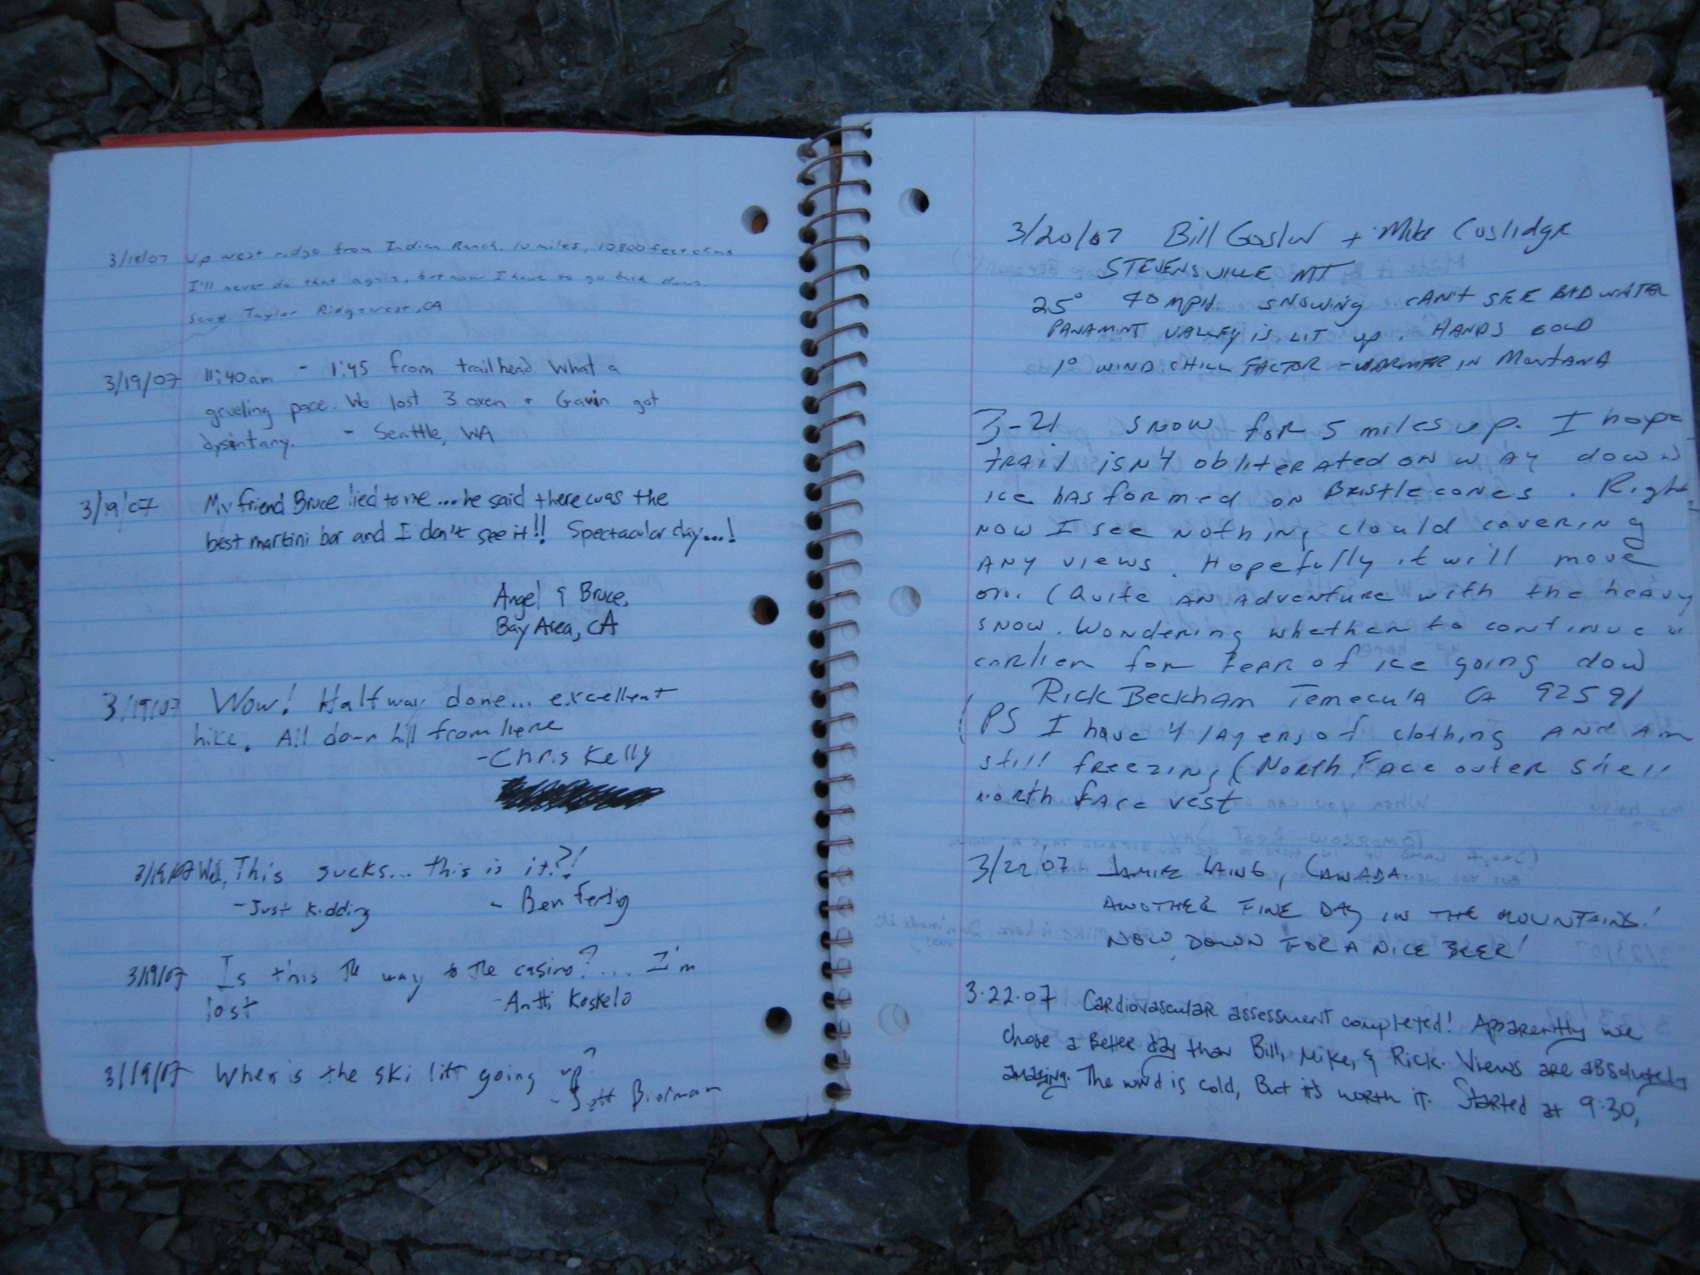 3/18/07 Up west ridge from Indian Ranch. 10 miles, 10,800 feet
I'll never do that again, but now I have to go back down.
Scott Taylor Ridgecrest, CA
3/19/07 11:40am - 1:45 from trailhead What a
grueling pace. We lost 3 oxen + Gavin got
dysintary. - Seattle, WA
3/19/07 My friend Bruce lied to me...he said there was the
best martini bar and I don't see it!! Spectacular day...!
Angel & Bruce,
Bay Area, CA
3/19/07 Wow! Halfway done... excellent
hike. All down hill from here
- Chris Kelly
3/19/07 Well, This sucks... this is it?!
- Just Kidding - Ben Fertig
3/19/07 Is this the way to the casino?... I'm
lost - Antti Koskelo
3/19/07 When is the ski lift going up?
- Bierman
3/20/07 Bill + Mike
STEVENSVILLE MT
25° 40 MPH. SNOWING CAN'T SEE BADWATER
PANAMINT VALLEY IS LIT UP. HANDS COLD
1° WIND CHILL FACTOR - WARMER IN MONTANA
3-21 SNOW for 5 miles up. I hope
trail isn't obliterated on way down
ice has formed on Bristlecones. Right
now I see nothing clould covering
any views. Hopefully it will move
on. (Quite an adventure with the heavy
snow. Wondering whether to continue
earlier for fear of ice going dow
Rick Beckham Temecula CA 92591
(PS I have 4 layers of clothing and am
still freezing (North Face outer shell
north face vest
3/22/07 JAMIE LAING, CANADA
ANOTHER FINE DAY IN THE MOUNTAINS!
NOW DOWN FOR A NICE BEER!
3.22.07 Cardiovascular assessment completed! Apparently we
chose a better day than Bill, Mike, & Rick. Views are absolutely
amazing. The wind is cold, But it's worth it. Started at 9:30,